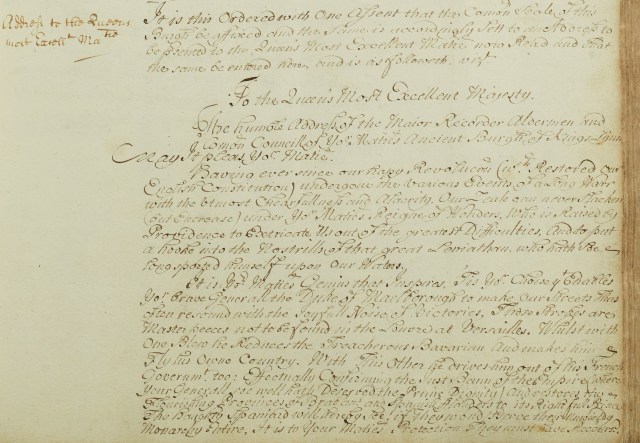 Address to the Queens
most Excellt Matie
It is this Ordered with One Assent that the Comon Seale of this
Burgh be affixed and the Same is accordingly Sett to an Address to
be presented to the Queens Most Excellent Matie now Read and that
the same be entred here and is as followeth, vizt
To the Queen's Most Excellent Majesty.
The humble Address of the Maior Recorder Aldermen and
Comon Councill of Yor Maties Ancient Burgh of Kings Lynn
May it please Yor Matie.
Having ever since our happy Revolucon (wch Restored Our
English Constitution) undergone the various Events of a long Warr
with the utmost Chearfullness and Alacrity, Our Zeale can never Slacken
(but Encrease) under Yor Maties Reigne of Wonders, Who is Raised by
Providence to Extricate Us out of the greatest Difficulties, And to put
a hooke into the Nostrills of that great Leviathan, who hath Soe
long sported himself upon Our Waters.
It is Yor Maties Genius that Inspires, Tis Yor Choise yt Enables
Yor brave Generall the Duke of Marlborough to make Our Streets thus
often resound with the Joyfull Noise of Victories, These Strokes are
Master peeces not to be found in the Louvre at Versailles. Whilst with
One Blow he Reduces the Treacherous Bavarian And makes him
Fly his Owne Country. With This Other he drives him out of his French
Governmt too; Effectually
Your Generall soe well hath Deserved the
Flourishing Provinces of
The Haughty Spaniard will
Monarchy Entire. It is to Your Maties Protection They must